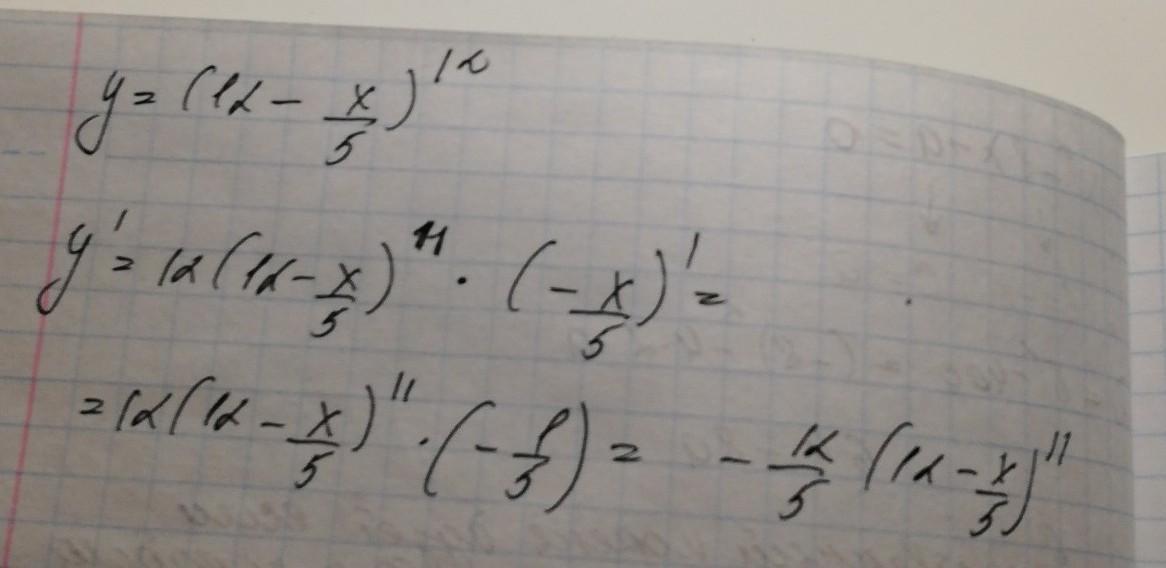 y = (12 - x/5)^12
y' = 12(12 - x/5)^11 · (-x/5)' =
= 12(12 - x/5)^11 · (-1/5) = -12/5 (12 - x/5)^11